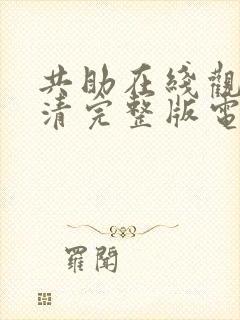 共助在綫觀
清完整版電
羅聞